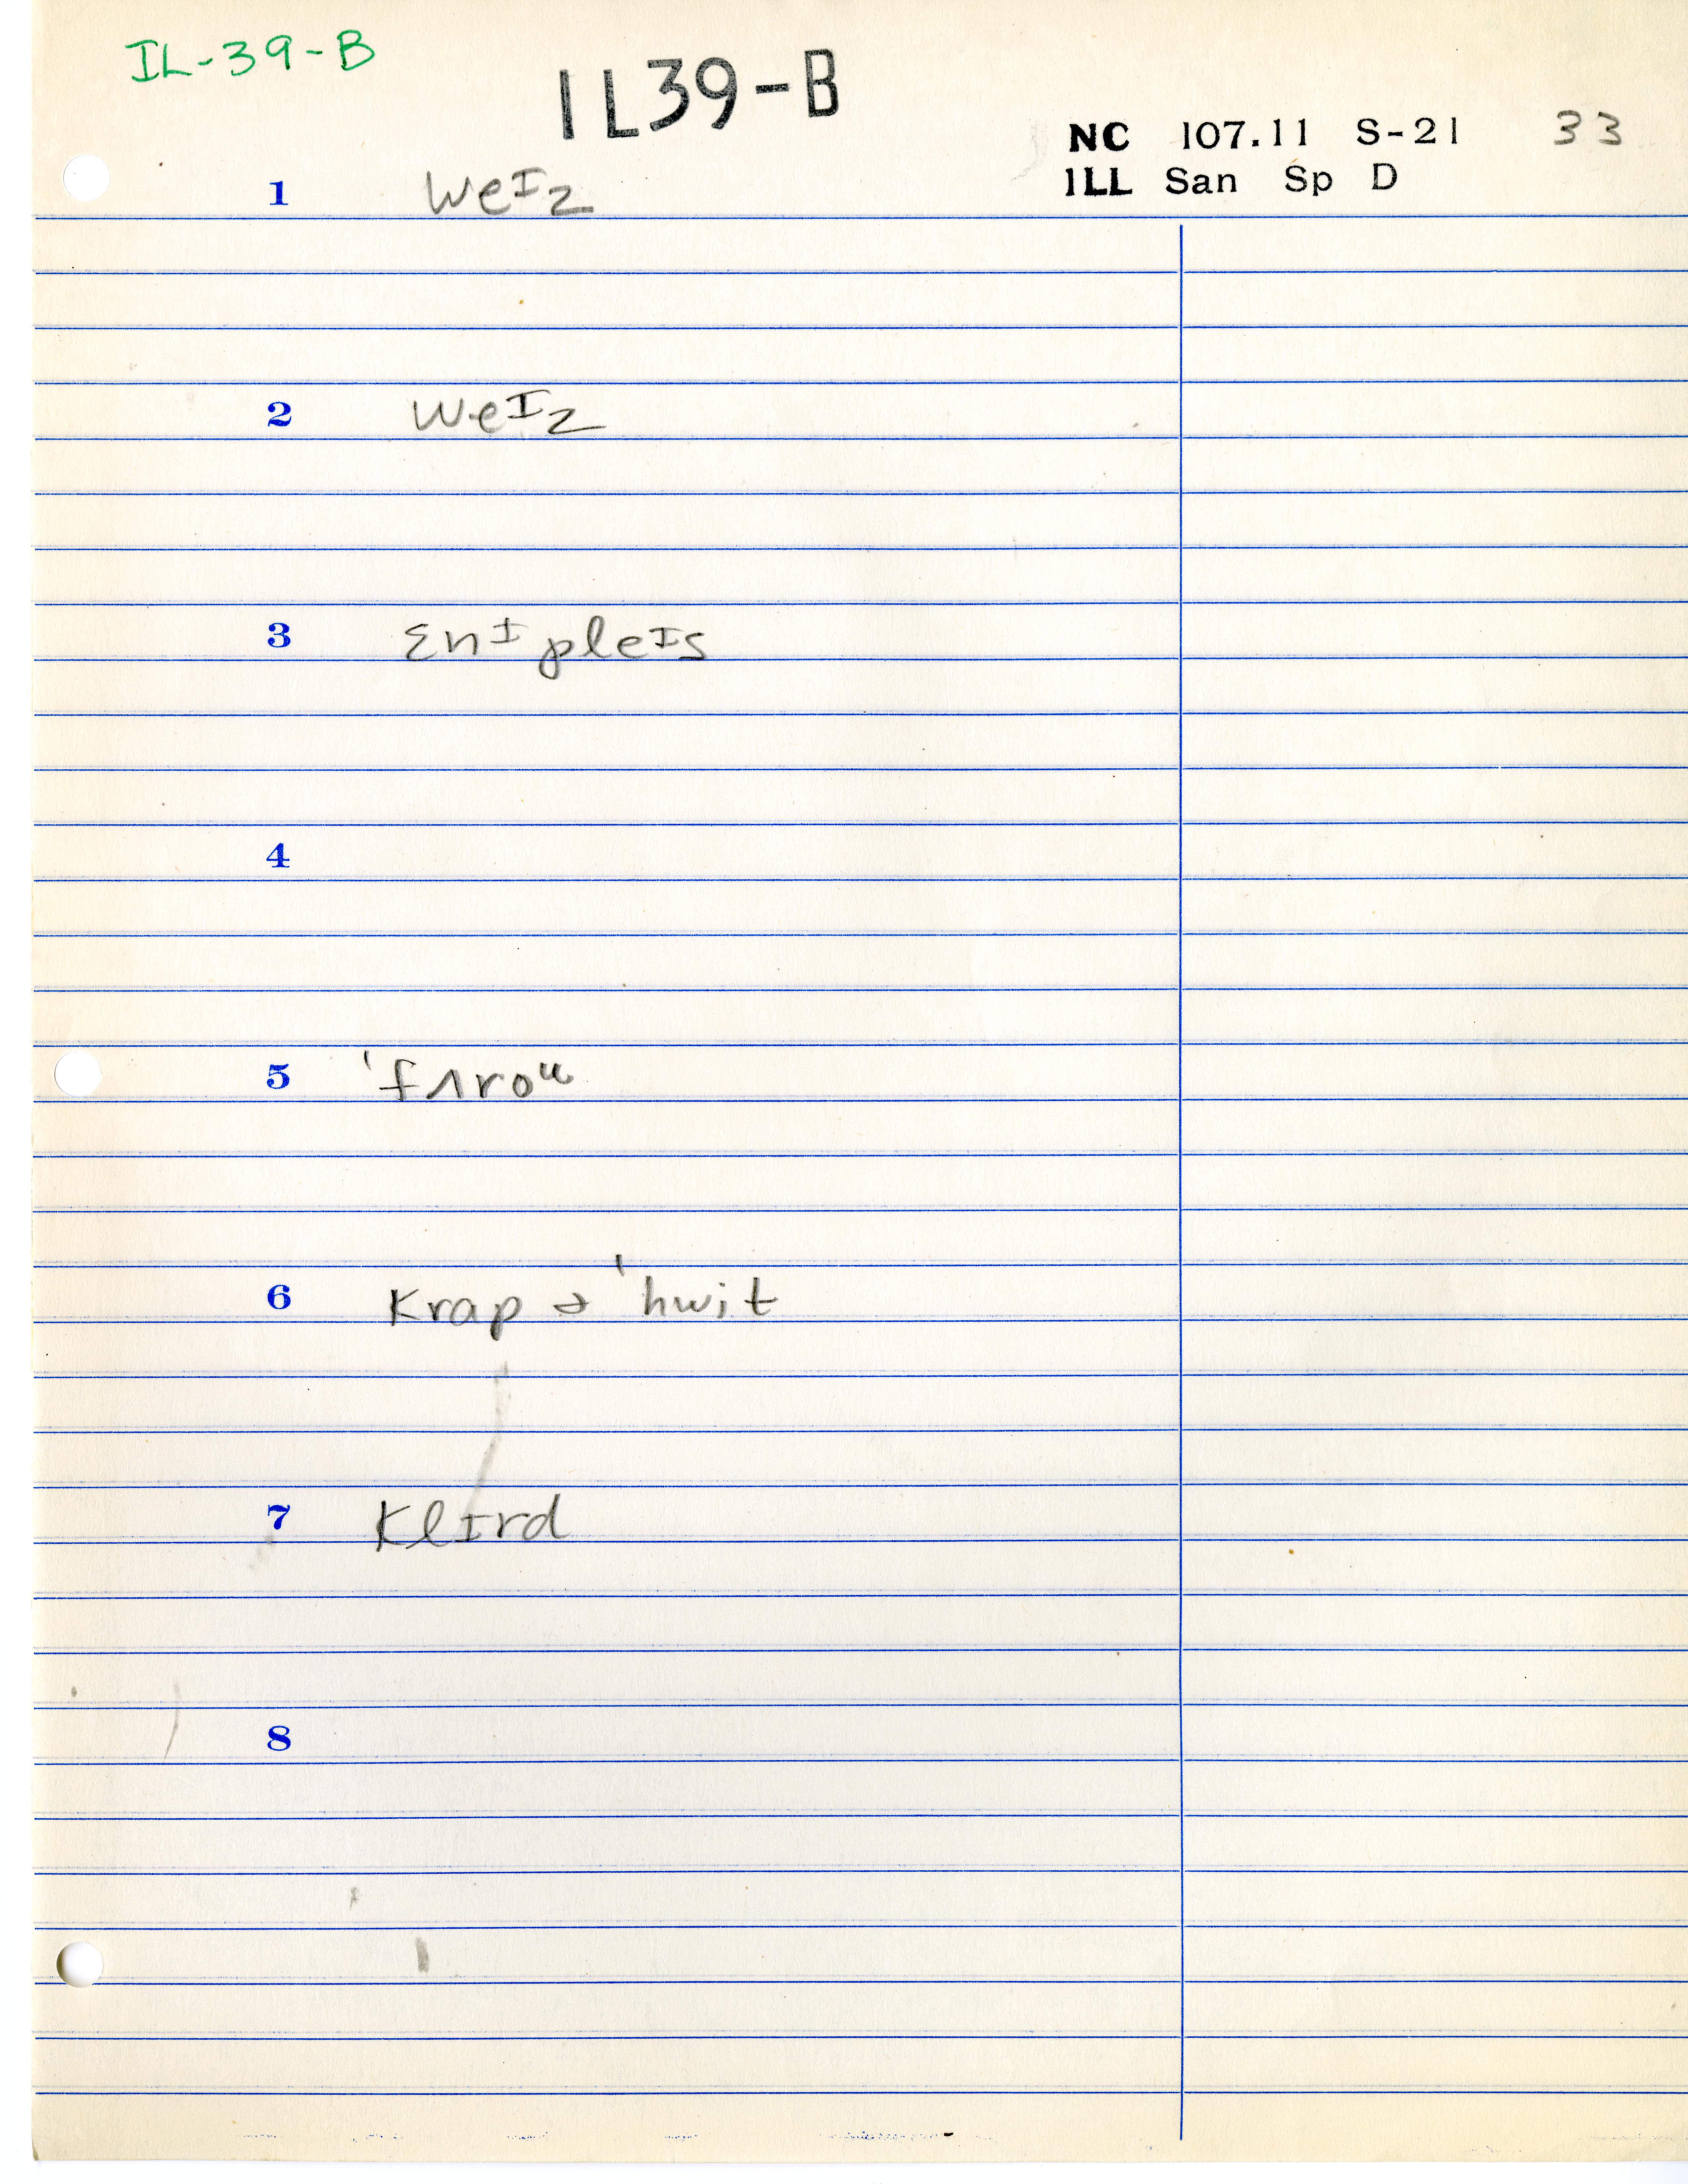 IL-39-B
IL39-B
NC 107.11 S-21 33
ILL San Sp D
1 weᴵz
2 weᴵz
3 ɛnɪ pleɪs
4
5 'fʌroᵘ
6 krap ə 'hwit
7 klɪrd
8